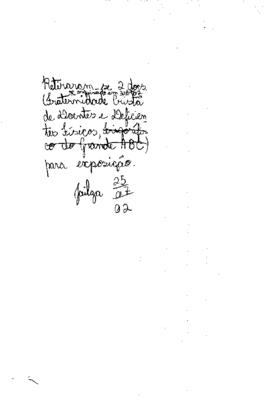 Retiraram-se 2 dos
(Fraternidade Cristã
de Doentes e Deficien-
tes Físicos,
co do Grande ABC)
para exposição.
Jailza 25
07
92